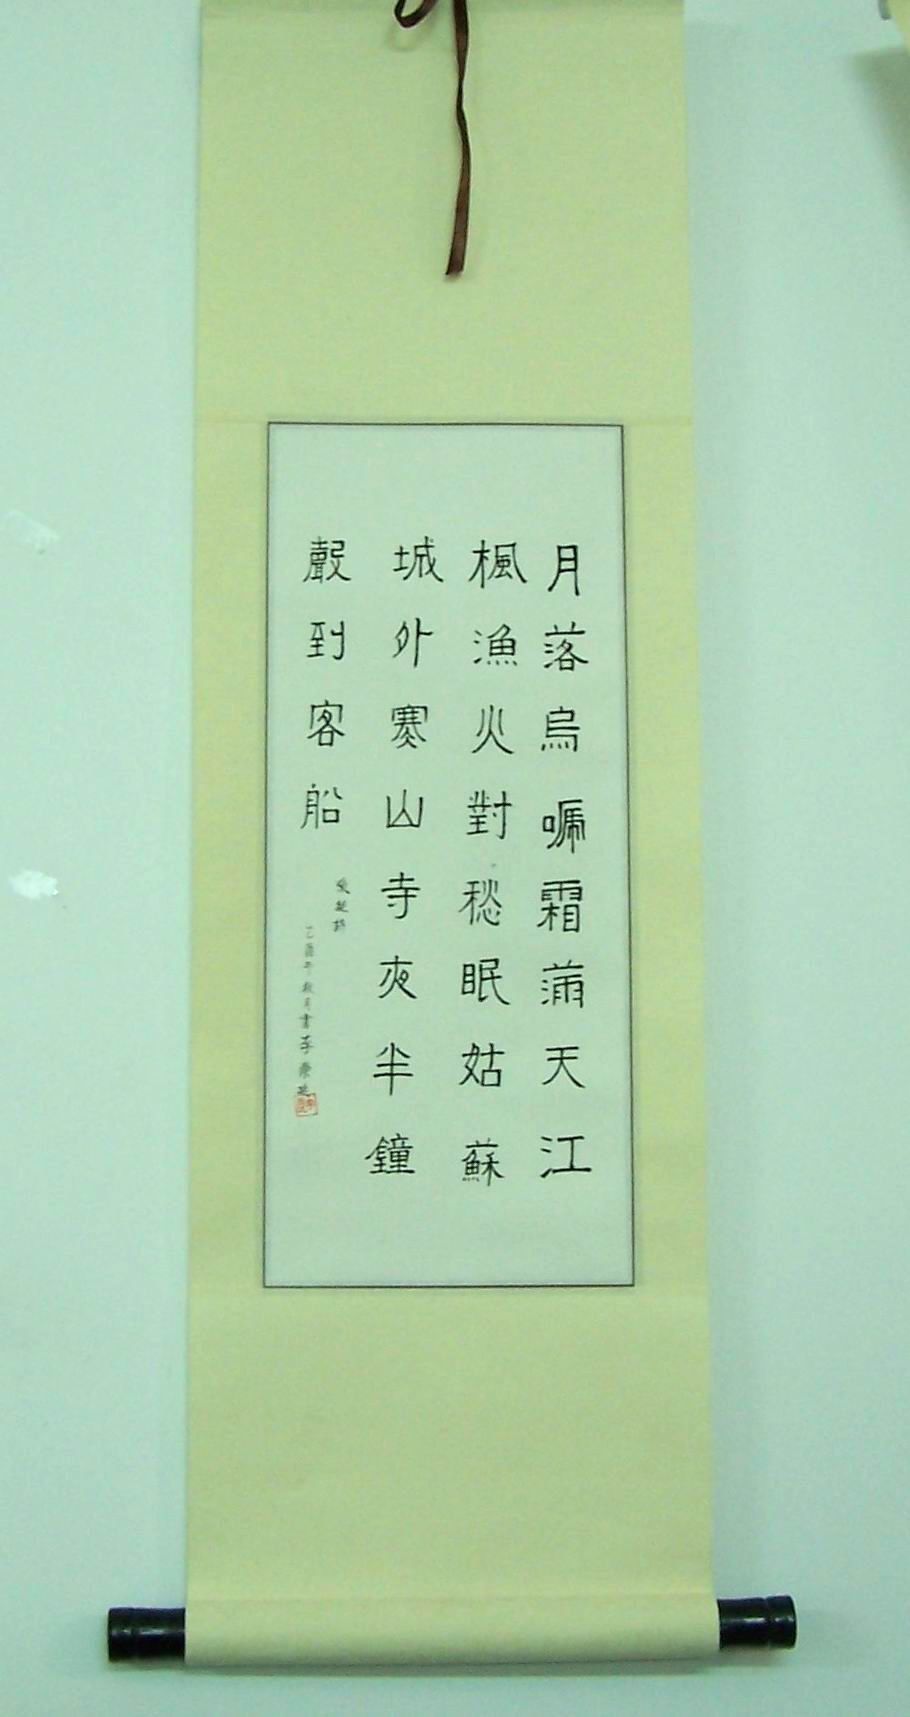 月落烏嗁霜滿天江
楓漁火對愁眠姑蘇
城外寒山寺夜半鐘
聲到客船
張繼詩
乙酉年秋月書李